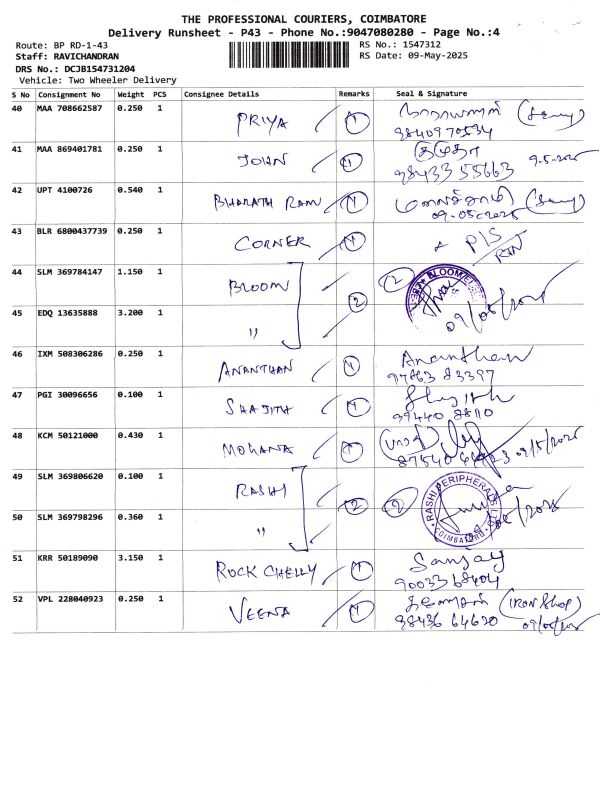 THE PROFESSIONAL COURIERS, COIMBATORE
Delivery Runsheet - P43 - Phone No.:9047080280 - Page No.:4
Route: BP RD-1-43
RS No.: 1547312
Staff: RAVICHANDRAN
RS Date: 09-May-2025
DRS No.: DCJB154731204
Vehicle: Two Wheeler Delivery
S No Consignment No Weight PCS Consignee Details Remarks Seal & Signature
40 MAA 708662587 0.250 1 PRIYA 1
98409 70534
41 MAA 869401781 0.250 1 JOHN 1 குமுதா 9.5.2025
98433 55663
42 UPT 4100726 0.540 1 BHARATH RAM 1
09.05.2025
43 BLR 6800437739 0.250 1 CORNER 1 P/S
44 SLM 369784147 1.150 1 BLOOM 2 2 BLOOM
45 EDQ 13635888 3.200 1 " 09/05/2025
46 IXM 508306286 0.250 1 ANANTHAN 1 Ananthan
97863 83397
47 PGI 30096656 0.100 1 SHAJITH 1 Shajith
99440 8810
48 KCM 50121000 0.430 1 MOHANA 1
09/5/2025
49 SLM 369806620 0.100 1 RASHI 2 2 RASHI PERIPHERALS LTD
COIMBATORE
50 SLM 369798296 0.360 1 "
51 KRR 50189090 3.150 1 ROCK CHELLY 1 Sanjay
90033 68404
52 VPL 228040923 0.250 1 VEENA 1 (IRON Shop)
98436 64620 09/05/2025